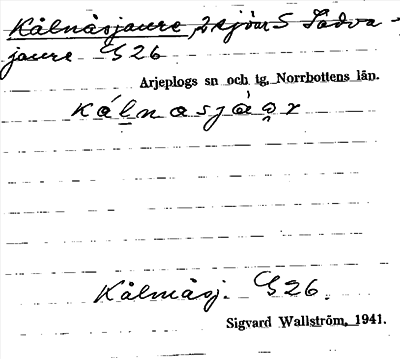 Kålmåsjaure, 2 sjöar S Sädva-
jaure G26
Arjeplogs sn och tg, Norrbottens län.
kálnasjàạr
Kålmåsj. G26.
Sigvard Wallström, 1941.